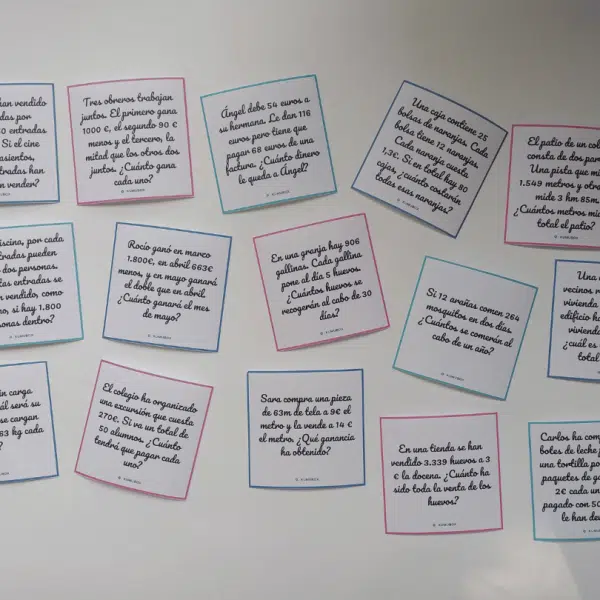 han vendido
das por
entradas
Si el cine
asientos,
tradas han
n vender?
Tres obreros trabajan
juntos. El primero gana
1000 €, el segundo 90 €
menos y el tercero, la
mitad que los otros dos
juntos. ¿Cuánto gana
cada uno?
Ángel debe 54 euros a
su hermana. Le dan 116
euros pero tiene que
pagar 68 euros de una
factura. ¿Cuánto dinero
le queda a Ángel?
Una caja contiene 25
bolsas de naranjas. Cada
bolsa tiene 12 naranjas.
Cada naranja cuesta
1,3€. Si en total hay 80
cajas, ¿cuánto costarán
todas esas naranjas?
El patio de un col
consta de dos par
Una pista que mi
1.549 metros y otra
mide 3 hm 85m.
¿Cuántos metros mi
total el patio?
iscina, por cada
tradas pueden
dos personas.
tas entradas se
n vendido, como
o, si hay 1.800
onas dentro?
Rocío ganó en marzo
1.800€, en abril 663€
menos, y en mayo ganará
el doble que en abril.
¿Cuánto ganará el mes
de mayo?
En una granja hay 906
gallinas. Cada gallina
pone al día 5 huevos.
¿Cuántos huevos se
recogerán al cabo de 30
días?
Si 12 arañas comen 264
mosquitos en dos días.
¿Cuántos se comerán al
cabo de un año?
Una
vecinos
vivienda
edificio ha
viviend
¿cuál es
total
in carga
ál será su
se cargan
63 kg cada
El colegio ha organizado
una excursión que cuesta
270€. Si va un total de
50 alumnos. ¿Cuánto
tendrá que pagar cada
uno?
Sara compra una pieza
de 63m de tela a 9€ el
metro y la vende a 14 €
el metro. ¿Qué ganancia
ha obtenido?
En una tienda se han
vendido 3.339 huevos a 3
€ la docena. ¿Cuánto ha
sido toda la venta de los
huevos?
Carlos ha com
botes de leche
una tortilla po
paquetes de ga
2€ cada un
pagado con 50
le han dev